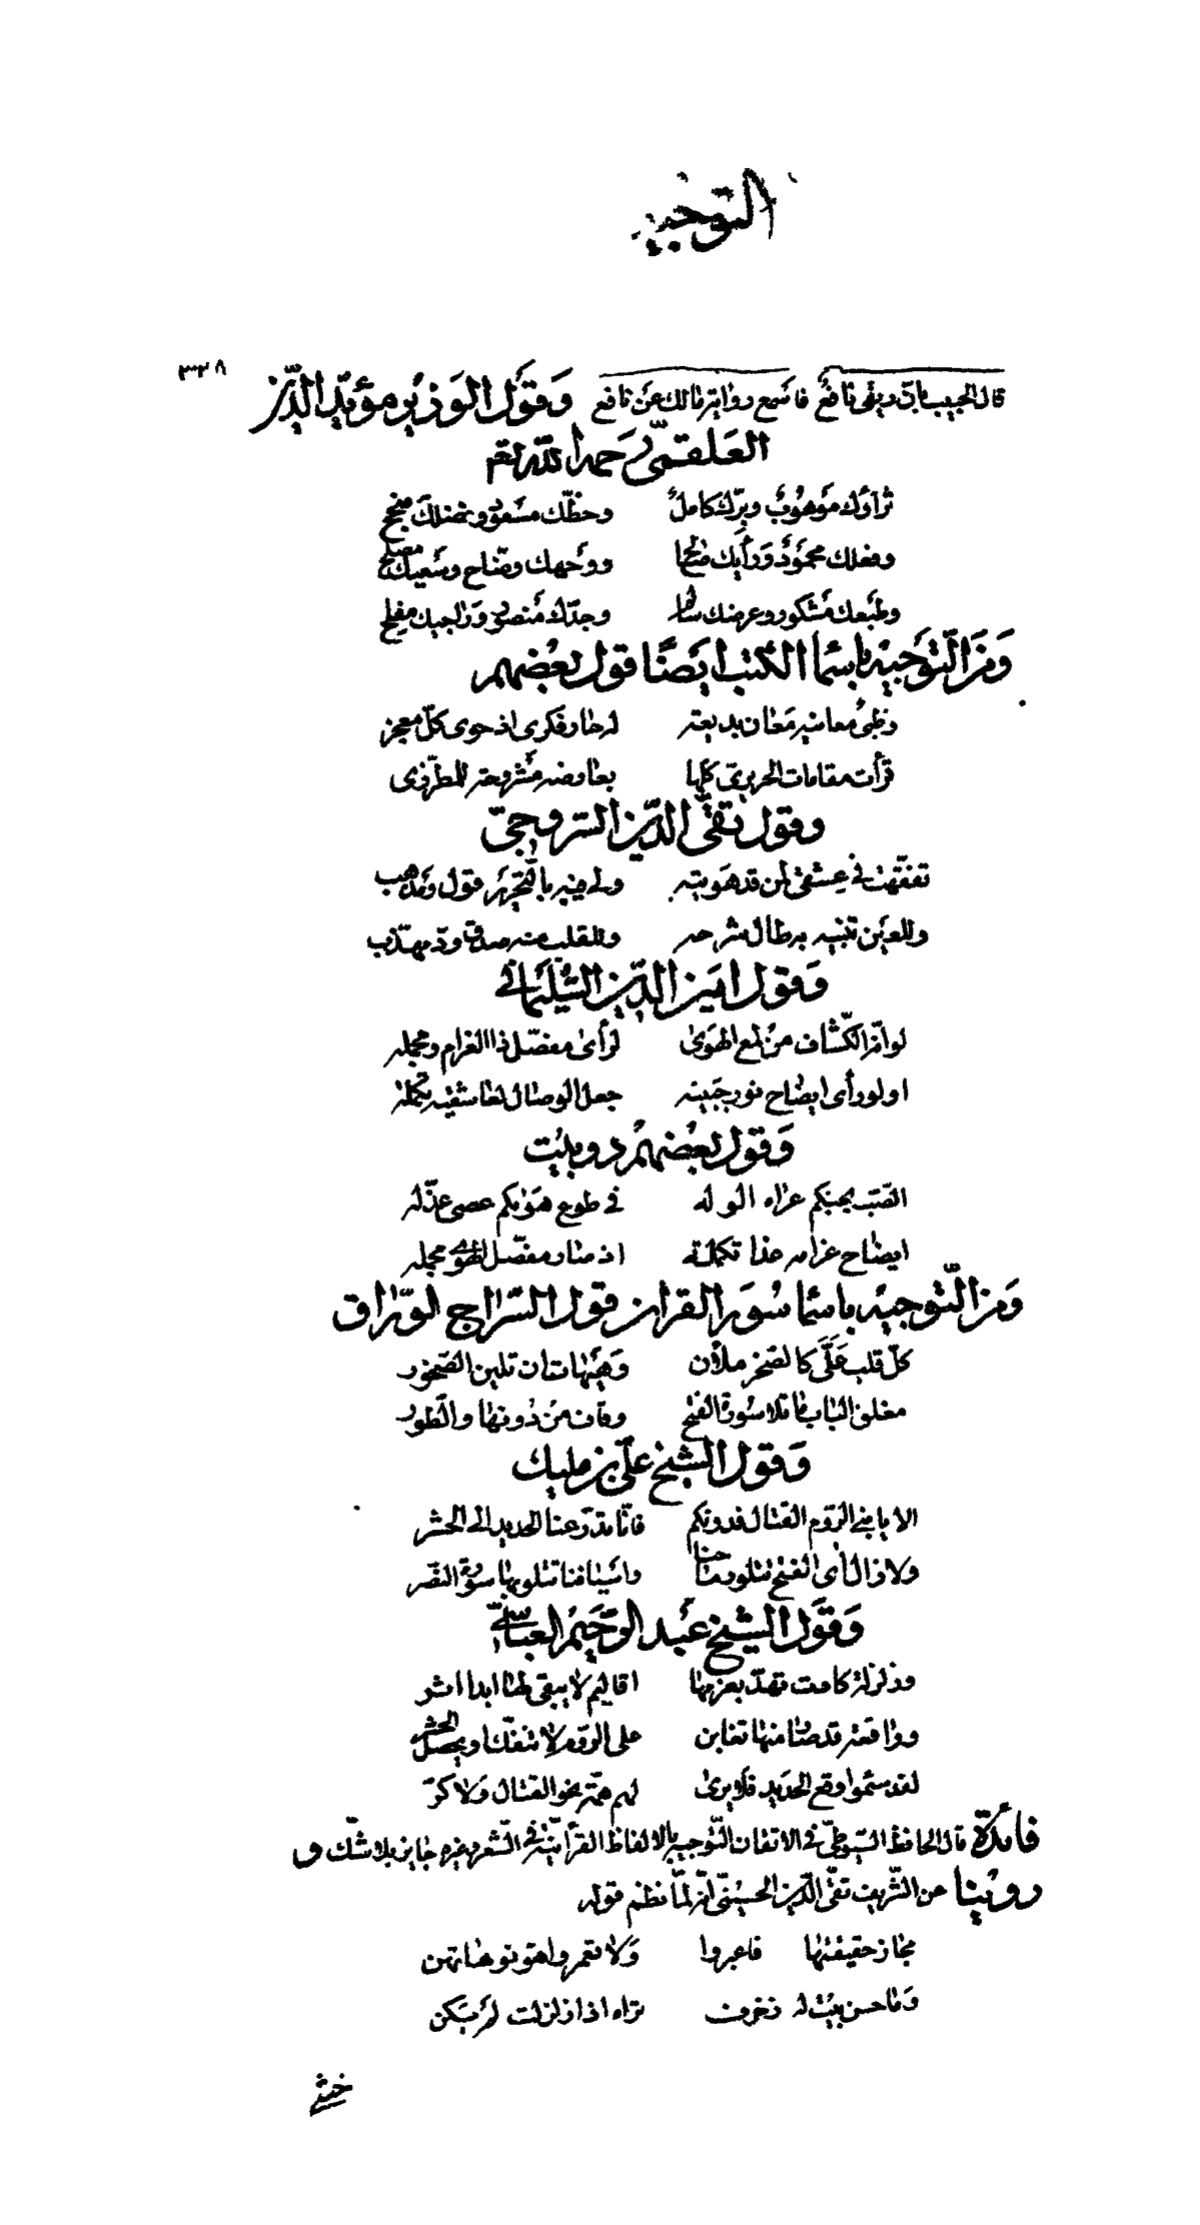 التوجيه
٣٣٨
قال الحبيب بان ريقى نافع فاسمع رواية مالك عن نافع وقول الوزير مؤيد الدين
العلقمى رحمه الله تعالى
ثراؤك موهوب وبرك كامل وحظك مسعود وفضلك منجح
وفعلك محمود ورأيك صالح ووجهك وضاح وسعيك مصلح
وطبعك مشكور وعرضك سالم وجدك منصور وراجيك مفلح
ومن التوجيه باسما الكتب ايضا قول بعضهم
وظبى معانيه معان بديعة له حار فكرى اذ حوى كل معجز
قرأت مقامات الحريرى كلها بعارضه مشروحة للمطرزى
وقول تقى الدين السروجى
تفقهت فى عشقى لمن قد هويته ولى فيه بالتحرير قول ومذهب
وللعين تنبيه به طال شرحه وللقلب منه صدق ود مهذب
وقول امين الدين السليمانى
لو انه الكشاف من لمع الهوى لرأى مفصل ذا الغرام ومجمله
او لو رأى ايضاح نور جبينه جعل الوصال لعاشقيه تكمله
وقول بعضهم دوبيت
الصب بحبكم عراه الوله فى طوع هواكم عصى عذله
ايضاح غرامه غدا تكملة اذ صار مفصل الهوى مجمله
ومن التوجيه باسما سور القران قول السراج الوراق
كل قلب على كالصخر ملآن وهيهات ان تلين الصخور
مغلق الباب ما تلا سورة الفتح وقاف من دونها والطور
وقول الشيخ على بن مليك
الا يا بنى الروم القتال فدونكم فانا تدرعنا الحديد الى الحشر
ولا زال آى الفتح تتلو رماحنا واسيافنا تتلو بها سورة النصر
وقول الشيخ عبد الرحيم العباسى
وزلزلة كادت تهد بعزمها اقاليم لا يبقى لها ابدا اثر
وواقعة قد صار منها تغابن على الروم لا تنفك او يحصل الحشر
لقد سئموا وقع الحديد فلا يرى لهم همة نحو القتال ولا كر
فائدة قال الحافظ السيوطى فى الاتقان التوجيه بالالفاظ القرآنية فى الشعر وغيره جايز بلا شك و
روينا عن الشريف تقى الدين الحسينى انه لما نظم قوله
مجاز حقيقتها فاعبروا ولا تعمروا هونوها تهن
وما حسن بيت له زخرف تراه اذا زلزلت لم يكن
خشى